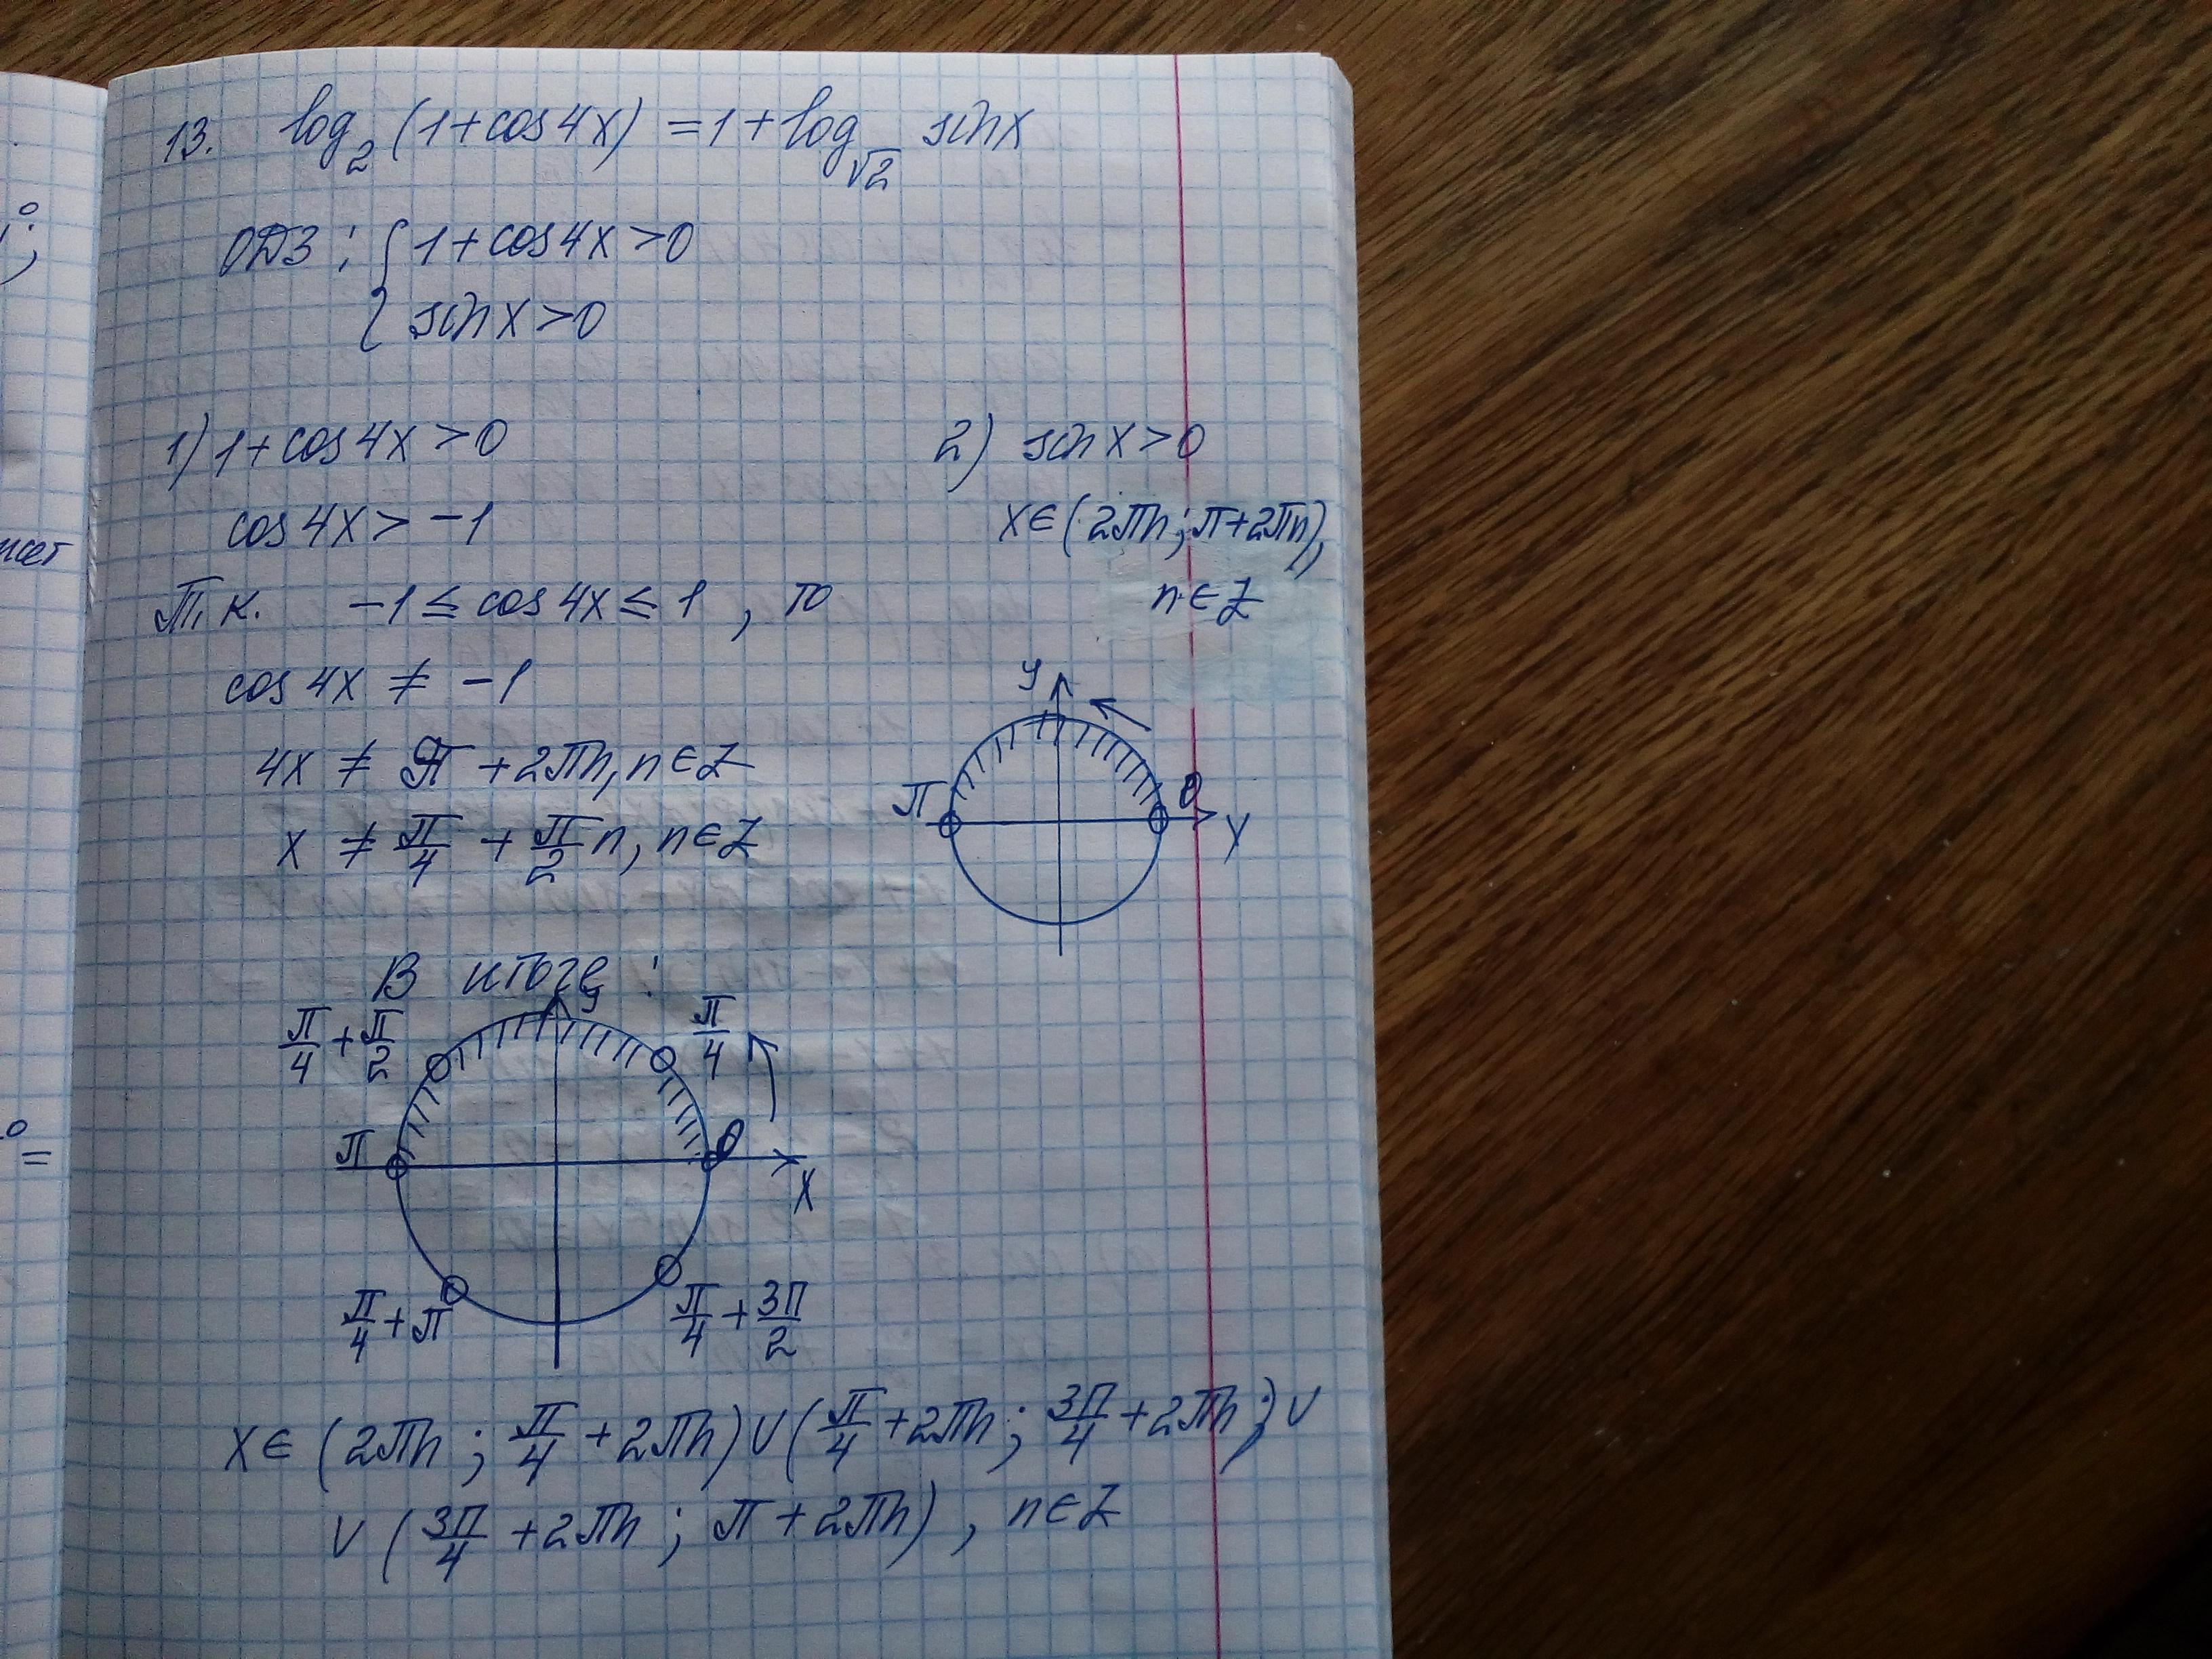 13. log₂(1+cos4x) = 1 + log_√2 sinx
ОДЗ: { 1+cos4x>0
{ sinx>0
1) 1+cos4x>0
cos4x > -1
Т.к. -1 ≤ cos4x ≤ 1, то
cos4x ≠ -1
4x ≠ π + 2πn, n∈Z
x ≠ π/4 + π/2 n, n∈Z
2) sinx>0
x∈(2πn; π+2πn),
n∈Z
y
π 0
x
В итоге:
y
π/4 + π/2 π/4
π 0
x
π/4 + π π/4 + 3π/2
x∈(2πn; π/4 + 2πn)∪(π/4 + 2πn; 3π/4 + 2πn)∪
∪(3π/4 + 2πn; π + 2πn), n∈Z
=